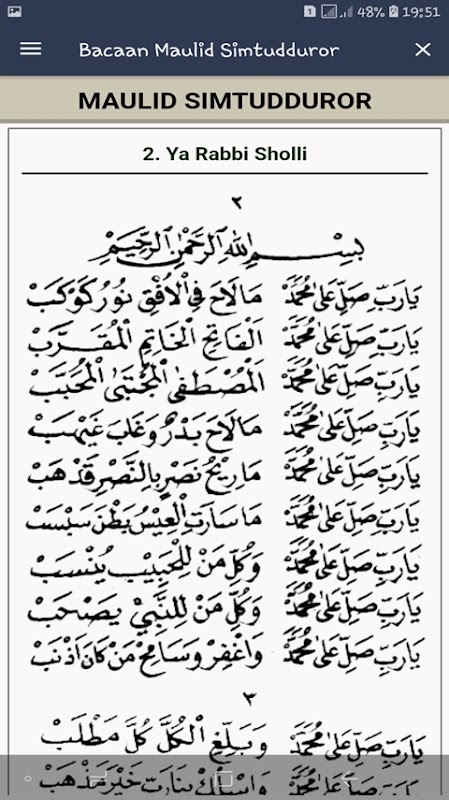 1 48% 19:51
Bacaan Maulid Simtudduror ×
MAULID SIMTUDDUROR
2. Ya Rabbi Sholli
٢
بِسْمِ اللهِ الرَّحْمٰنِ الرَّحِيْمِ
يَارَبِّ صَلِّ عَلَى مُحَمَّدْ مَالَاحَ فِي الْاُفْقِ نُوْرُ كَوْكَبْ
يَارَبِّ صَلِّ عَلَى مُحَمَّدْ الْفَاتِحِ الْخَاتِمِ الْمُقَرَّبْ
يَارَبِّ صَلِّ عَلَى مُحَمَّدْ الْمُصْطَفَى الْمُجْتَبَى الْمُحَبَّبْ
يَارَبِّ صَلِّ عَلَى مُحَمَّدْ مَالَاحَ بَدْرٌ وَغَابَ غَيْهَبْ
يَارَبِّ صَلِّ عَلَى مُحَمَّدْ مَارِيْحُ نَصْرٍ بِالنَّصْرِ قَدْ هَبْ
يَارَبِّ صَلِّ عَلَى مُحَمَّدْ مَاسَارَتِ الْعِيْسُ بَطْنَ سَبْسَبْ
يَارَبِّ صَلِّ عَلَى مُحَمَّدْ وَكُلِّ مَنْ لِلْحَبِيْبِ يُنْسَبْ
يَارَبِّ صَلِّ عَلَى مُحَمَّدْ وَكُلِّ مَنْ لِلنَّبِيِّ يَصْحَبْ
يَارَبِّ صَلِّ عَلَى مُحَمَّدْ وَاغْفِرْ وَسَامِحْ مَنْ كَانَ اَذْنَبْ
٣
يَارَبِّ صَلِّ عَلَى مُحَمَّدْ وَبَلِّغِ الْكُلَّ كُلَّ مَطْلَبْ
يَارَبِّ صَلِّ عَلَى مُحَمَّدْ وَاسْلُكْ بِنَارَبِّ خَيْرَ مَذْهَبْ